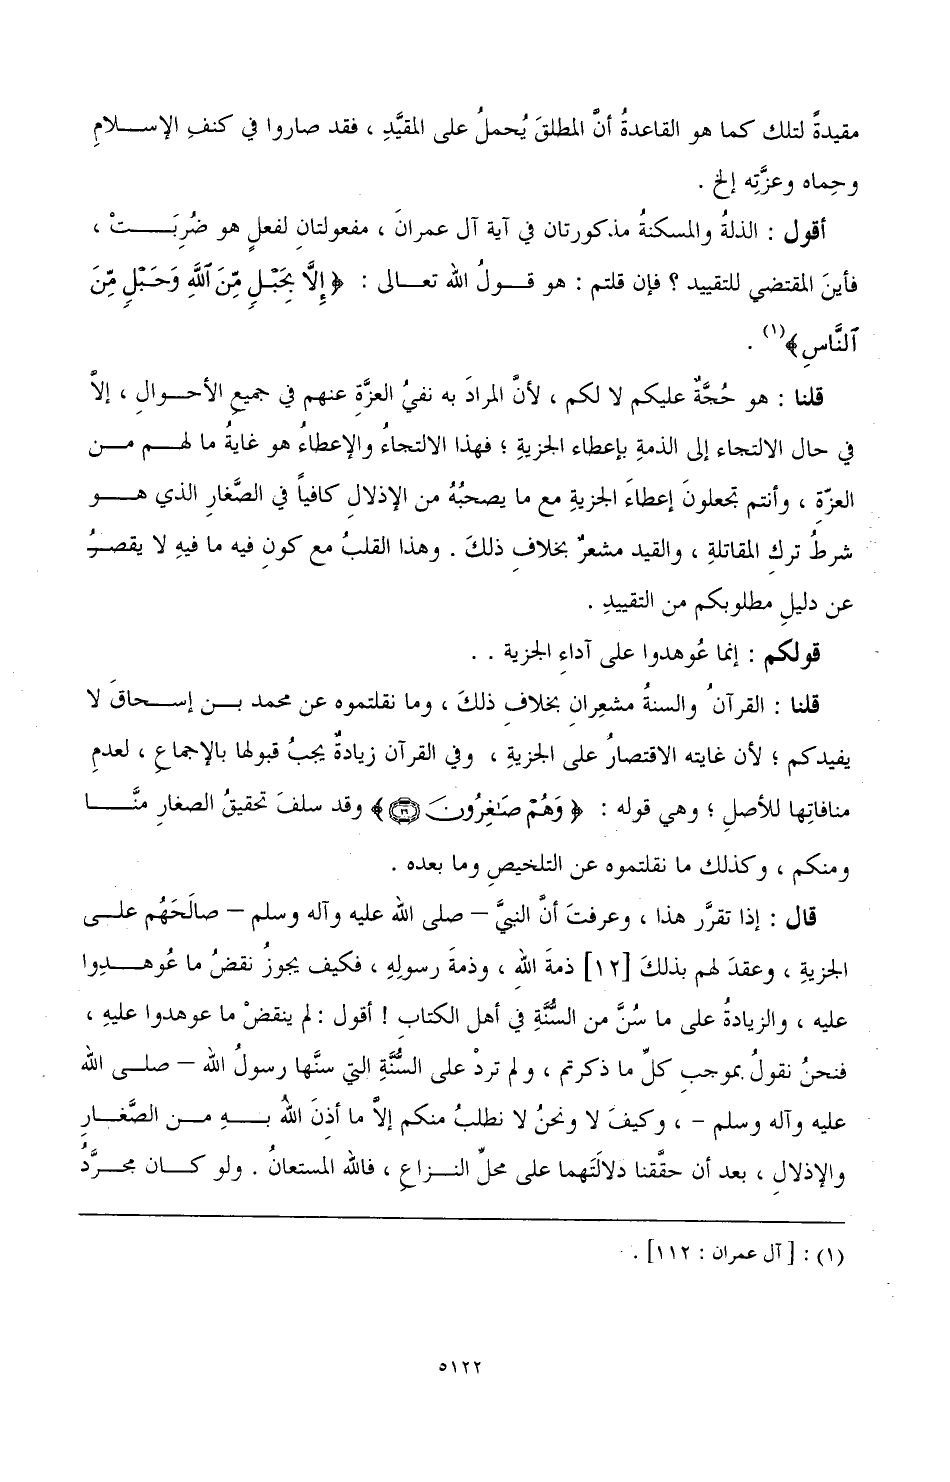 مقيدةً لتلك كما هو القاعدةُ أنَّ المطلقَ يُحملُ على المقيَّدِ ، فقد صاروا في كنفِ الإسلامِ
وحِماه وعزَّتِه إلخ .
أقول : الذلةُ والمسكنةُ مذكورتان في آية آل عمرانَ ، مفعولتانِ لفعلٍ هو ضُرِبَتْ ،
فأينَ المقتضي للتقييد ؟ فإن قلتم : هو قولُ الله تعالى : ﴿ إِلَّا بِحَبْلٍ مِّنَ ٱللَّهِ وَحَبْلٍ مِّنَ
ٱلنَّاسِ ﴾(١) .
قلنا : هو حُجَّةٌ عليكم لا لكم ، لأنَّ المرادَ به نفيُ العزَّةِ عنهم في جميعِ الأحوالِ ، إلاَّ
في حال الالتجاء إلى الذمةِ بإعطاء الجزيةِ ؛ فهذا الالتجاءُ والإعطاءُ هو غايةُ ما لهم من
العزّةِ ، وأنتم تجعلونَ إعطاءَ الجزيةِ مع ما يصحبُهُ من الإذلالِ كافياً في الصَّغارِ الذي هو
شرطُ تركِ المقاتلةِ ، والقيد مشعرٌ بخلافِ ذلكَ . وهذا القلبُ مع كونِ فيه ما فيهِ لا يقصرُ
عن دليلِ مطلوبكم من التقييدِ .
قولكم : إنما عُوهدوا على آداءِ الجزية . .
قلنا : القرآنُ والسنةُ مشعِرانِ بخلافِ ذلكَ ، وما نقلتموه عن محمد بن إسحاقَ لا
يفيدكم ؛ لأن غايته الاقتصارُ على الجزيةِ ، وفي القرآن زيادةٌ يجبُ قبولها بالإجماعِ ، لعدمِ
منافاتِها للأصلِ ؛ وهي قوله : ﴿ وَهُمْ صَٰغِرُونَ ٢٩ ﴾ وقد سلفَ تحقيقُ الصغارِ منَّا
ومنكم ، وكذلك ما نقلتموه عن التلخيصِ وما بعده .
قال : إذا تقرَّر هذا ، وعرفتَ أنَّ النبيَّ – صلى الله عليه وآله وسلم – صالَحَهُم على
الجزيةِ ، وعقدَ لهم بذلكَ [١٢] ذمةَ اللهِ ، وذمةَ رسولِهِ ، فكيف يجوزُ نقضُ ما عُوهدوا
عليه ، والزيادةُ على ما سُنَّ من السُّنَّةِ في أهل الكتابِ ! أقول : لم ينقضْ ما عوهدوا عليهِ ،
فنحنُ نقولُ بموجبِ كلِّ ما ذكرتم ، ولم تردْ على السُّنَّةِ التي سنَّها رسولُ الله – صلى الله
عليه وآله وسلم – ، وكيفَ لا ونحنُ لا نطلبُ منكم إلاَّ ما أذنَ اللهُ به من الصَّغارِ
والإذلالِ ، بعد أن حقَّقنا دلالَتَهما على محلِّ النزاعِ ، فالله المستعانُ . ولو كان مجرَّدُ
(١) : [ آل عمران : ١١٢] .
٥١٢٢